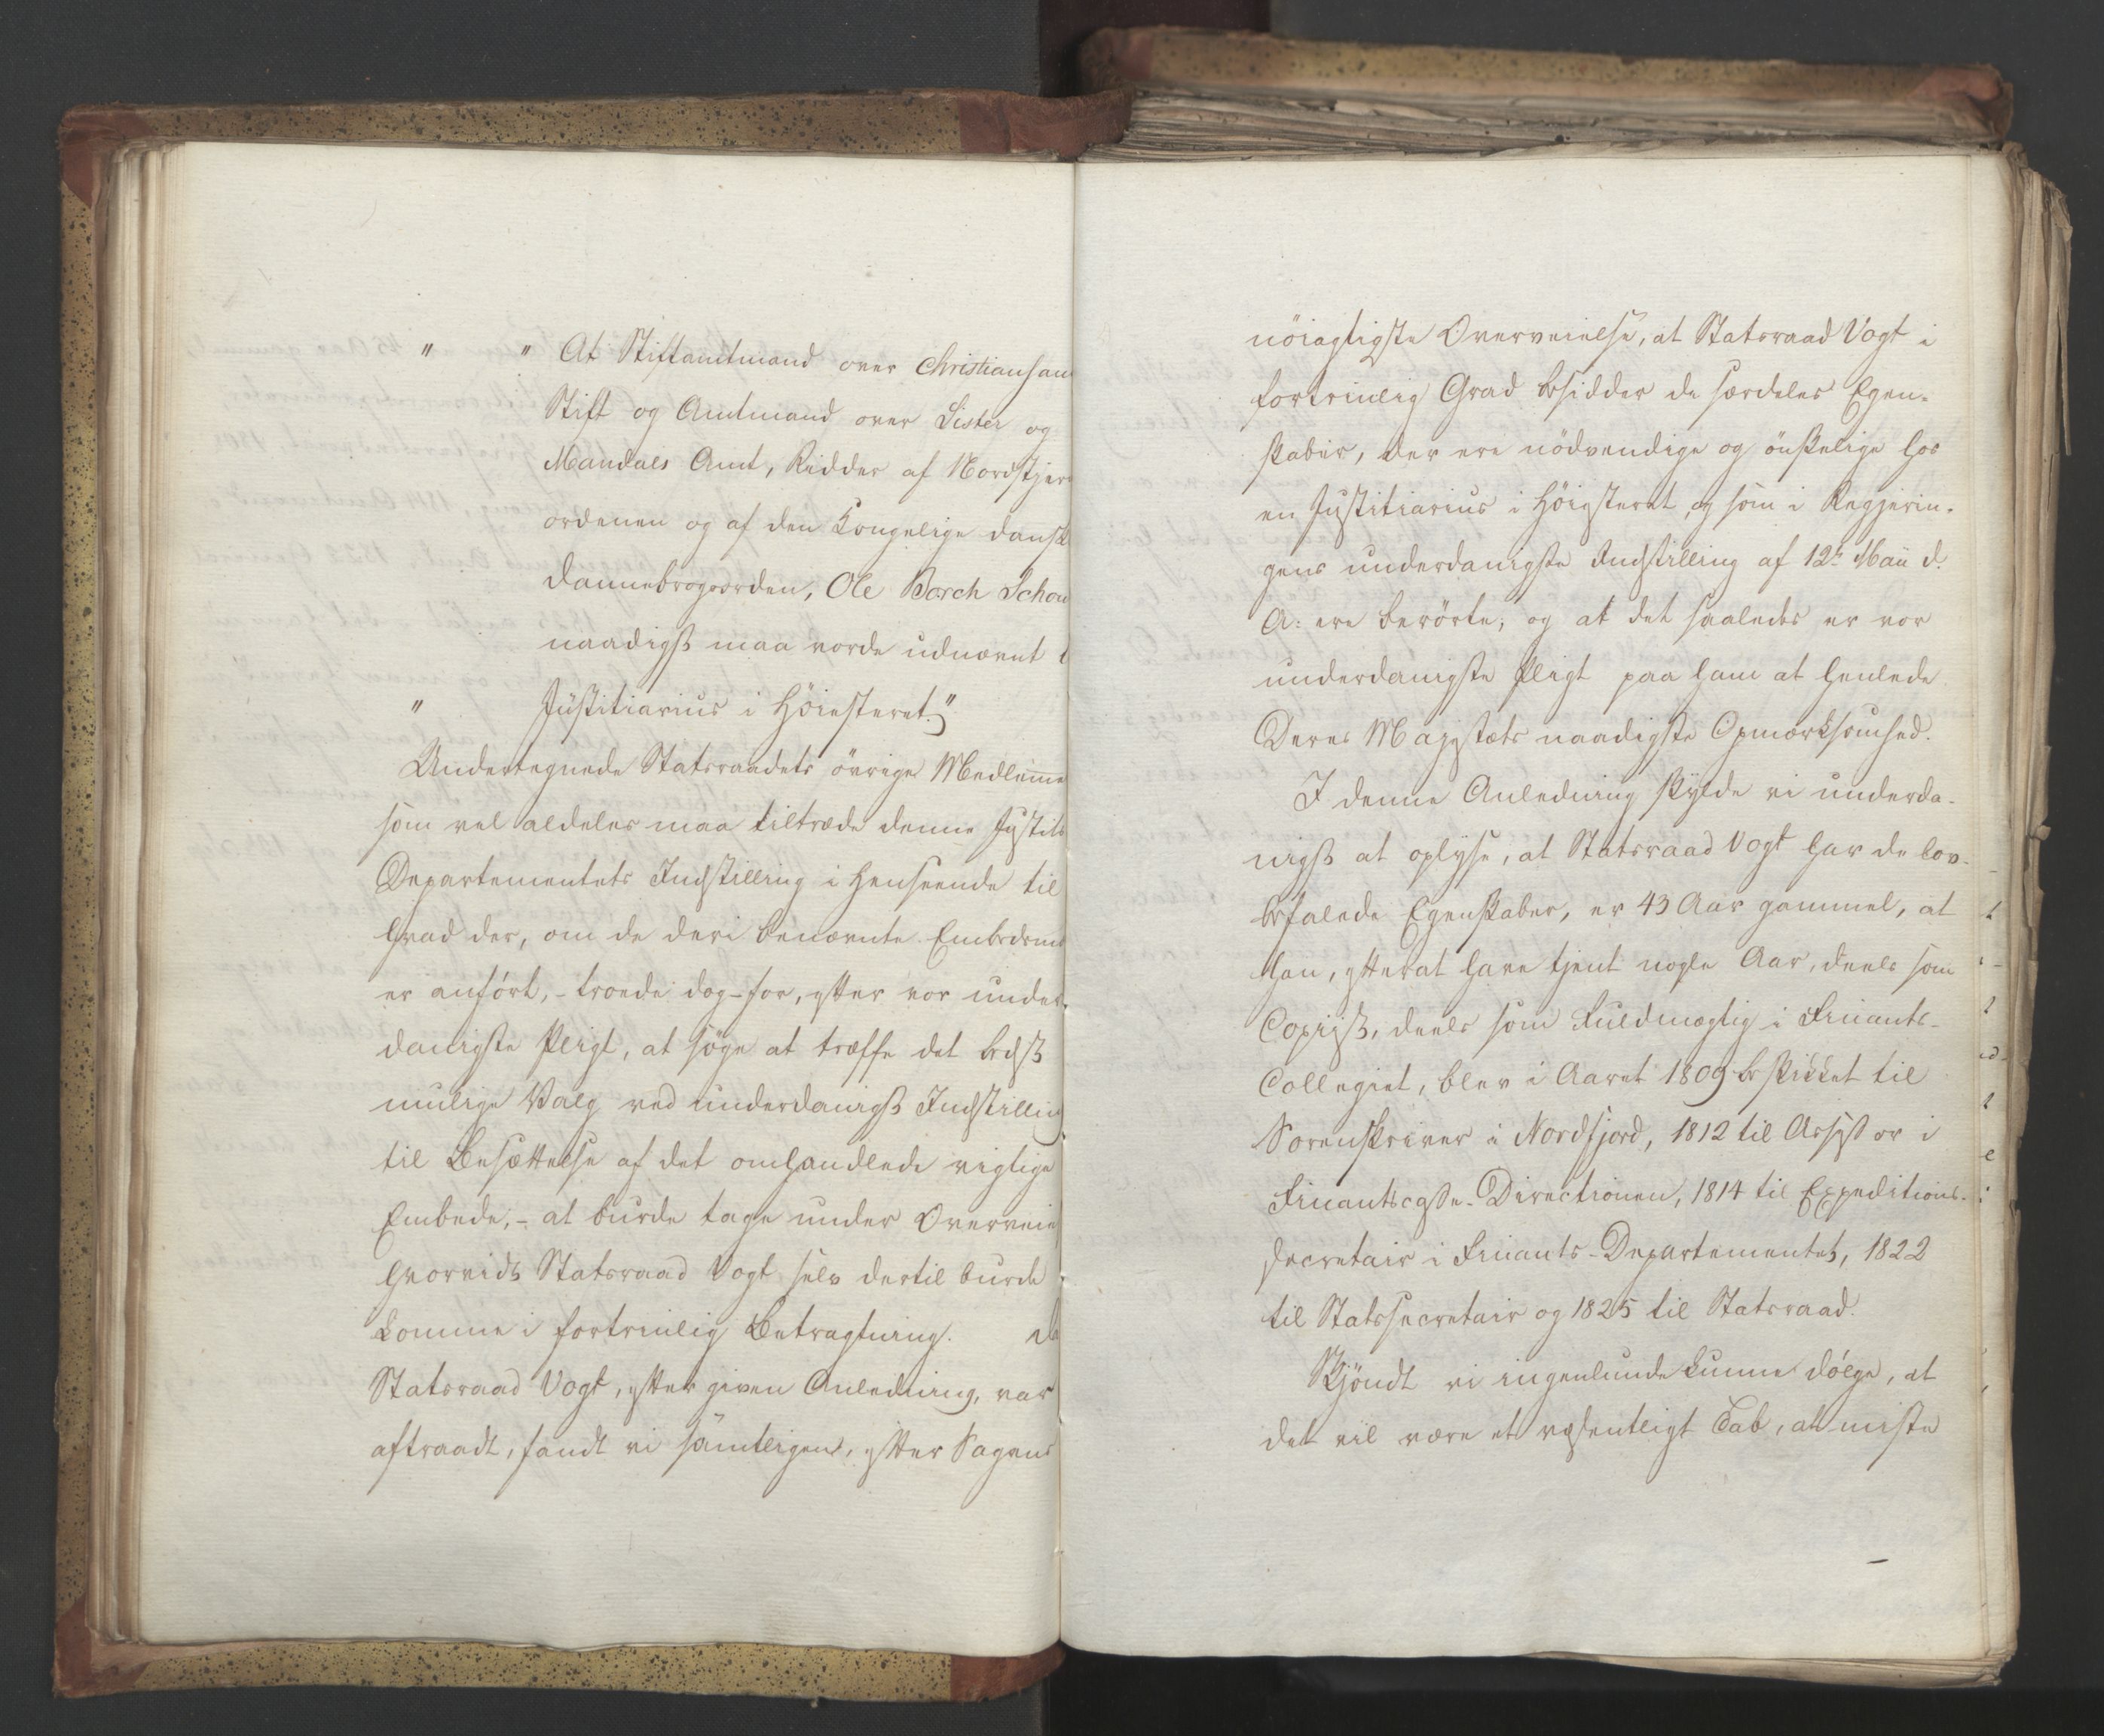 " " At Stiftamtmand over Christiansan
Stift og Amtmand over Lister og
Mandals Amt, Ridder af Nordstjer
ordenen og af den Kongelige danske
Dannebrogsorden, Ole Borch Schou
naadigst maa vorde udnævnt t
" Justitiarius i Høiesteret."
Undertegnede Statsraadets övrige Medlemme
som vel aldeles maa tiltræde denne Justits
Departementets Indstilling i Henseende til
hvad der, om de deri benævnte Embedsmæ
er anført, - troede dog - for, efter vor under-
danigste Pligt, at söge at træffe det bedst
mulige Valg ved underdanigst Indstilling
til Besættelse af det omhandlede vigtige
Embede, - at burde tage under Overveie
hvorvidt Statsraad Vogt selv dertil burde
komme i fortrinlig Betragtning. Da
Statsraad Vogt, efter given Anledning, var
aftraadt, fandt vi samtligen, efter Sagens
nöiagtigste Overveielse, at Statsraad Vogt i
fortrinlig Grad besidder de særdeles Egen-
skaber, der ere nödvendige og önskelige hos
en Justitiarius i Höiesteret, og som i Regjerin-
gens underdanigste Indstilling af 12te Maii d.
A: ere berörte, og at det saaledes er vor
underdanigste Pligt paa ham at henlede
Deres Majestæts naadigste Opmærksomhed.
I denne Anledning skylde vi underda-
nigst at oplyse, at Statsraad Vogt har de lov-
befalede Egenskaber, er 43 Aar gammel, at
han, efterat have tjent nogle Aar, deels som
Copiist, deels som Fuldmægtig i Finants-
Collegiet, blev i Aaret 1809 beskikket til
Sorenskriver i Nordfjord, 1812 til Assessor i
Finantscasse-Directionen, 1814 til Expeditions-
secretair i Finants-Departementet, 1822
til Statssecretair og 1825 til Statsraad.
Skjöndt vi ingenlunde kunne dölge, at
det vil være et væsentligt Tab, at miste